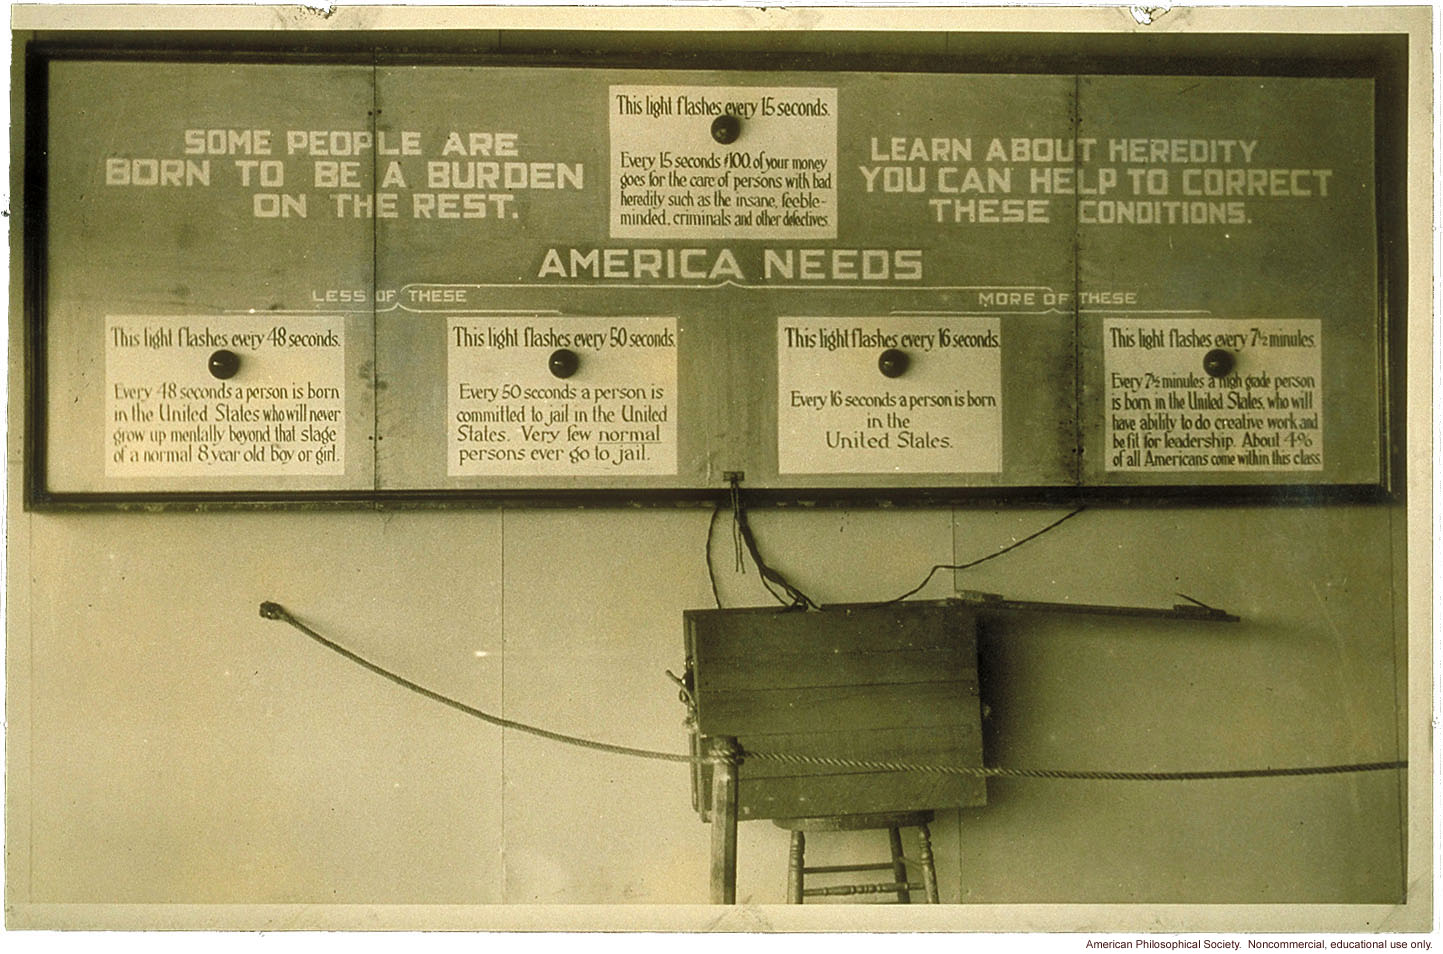 This light flashes every 15 seconds.
Every 15 seconds $100. of your money
goes for the care of persons with bad
heredity such as the insane, feeble-
minded, criminals and other defectives.
SOME PEOPLE ARE
BORN TO BE A BURDEN
ON THE REST.
LEARN ABOUT HEREDITY
YOU CAN HELP TO CORRECT
THESE CONDITIONS.
AMERICA NEEDS
LESS OF THESE
MORE OF THESE
This light flashes every 48 seconds.
Every 48 seconds a person is born
in the United States who will never
grow up mentally beyond that stage
of a normal 8 year old boy or girl.
This light flashes every 50 seconds.
Every 50 seconds a person is
committed to jail in the United
States. Very few normal
persons ever go to jail.
This light flashes every 16 seconds.
Every 16 seconds a person is born
in the
United States.
This light flashes every 7½ minutes.
Every 7½ minutes a high grade person
is born in the United States, who will
have ability to do creative work and
be fit for leadership. About 4%
of all Americans come within this class.
American Philosophical Society. Noncommercial, educational use only.